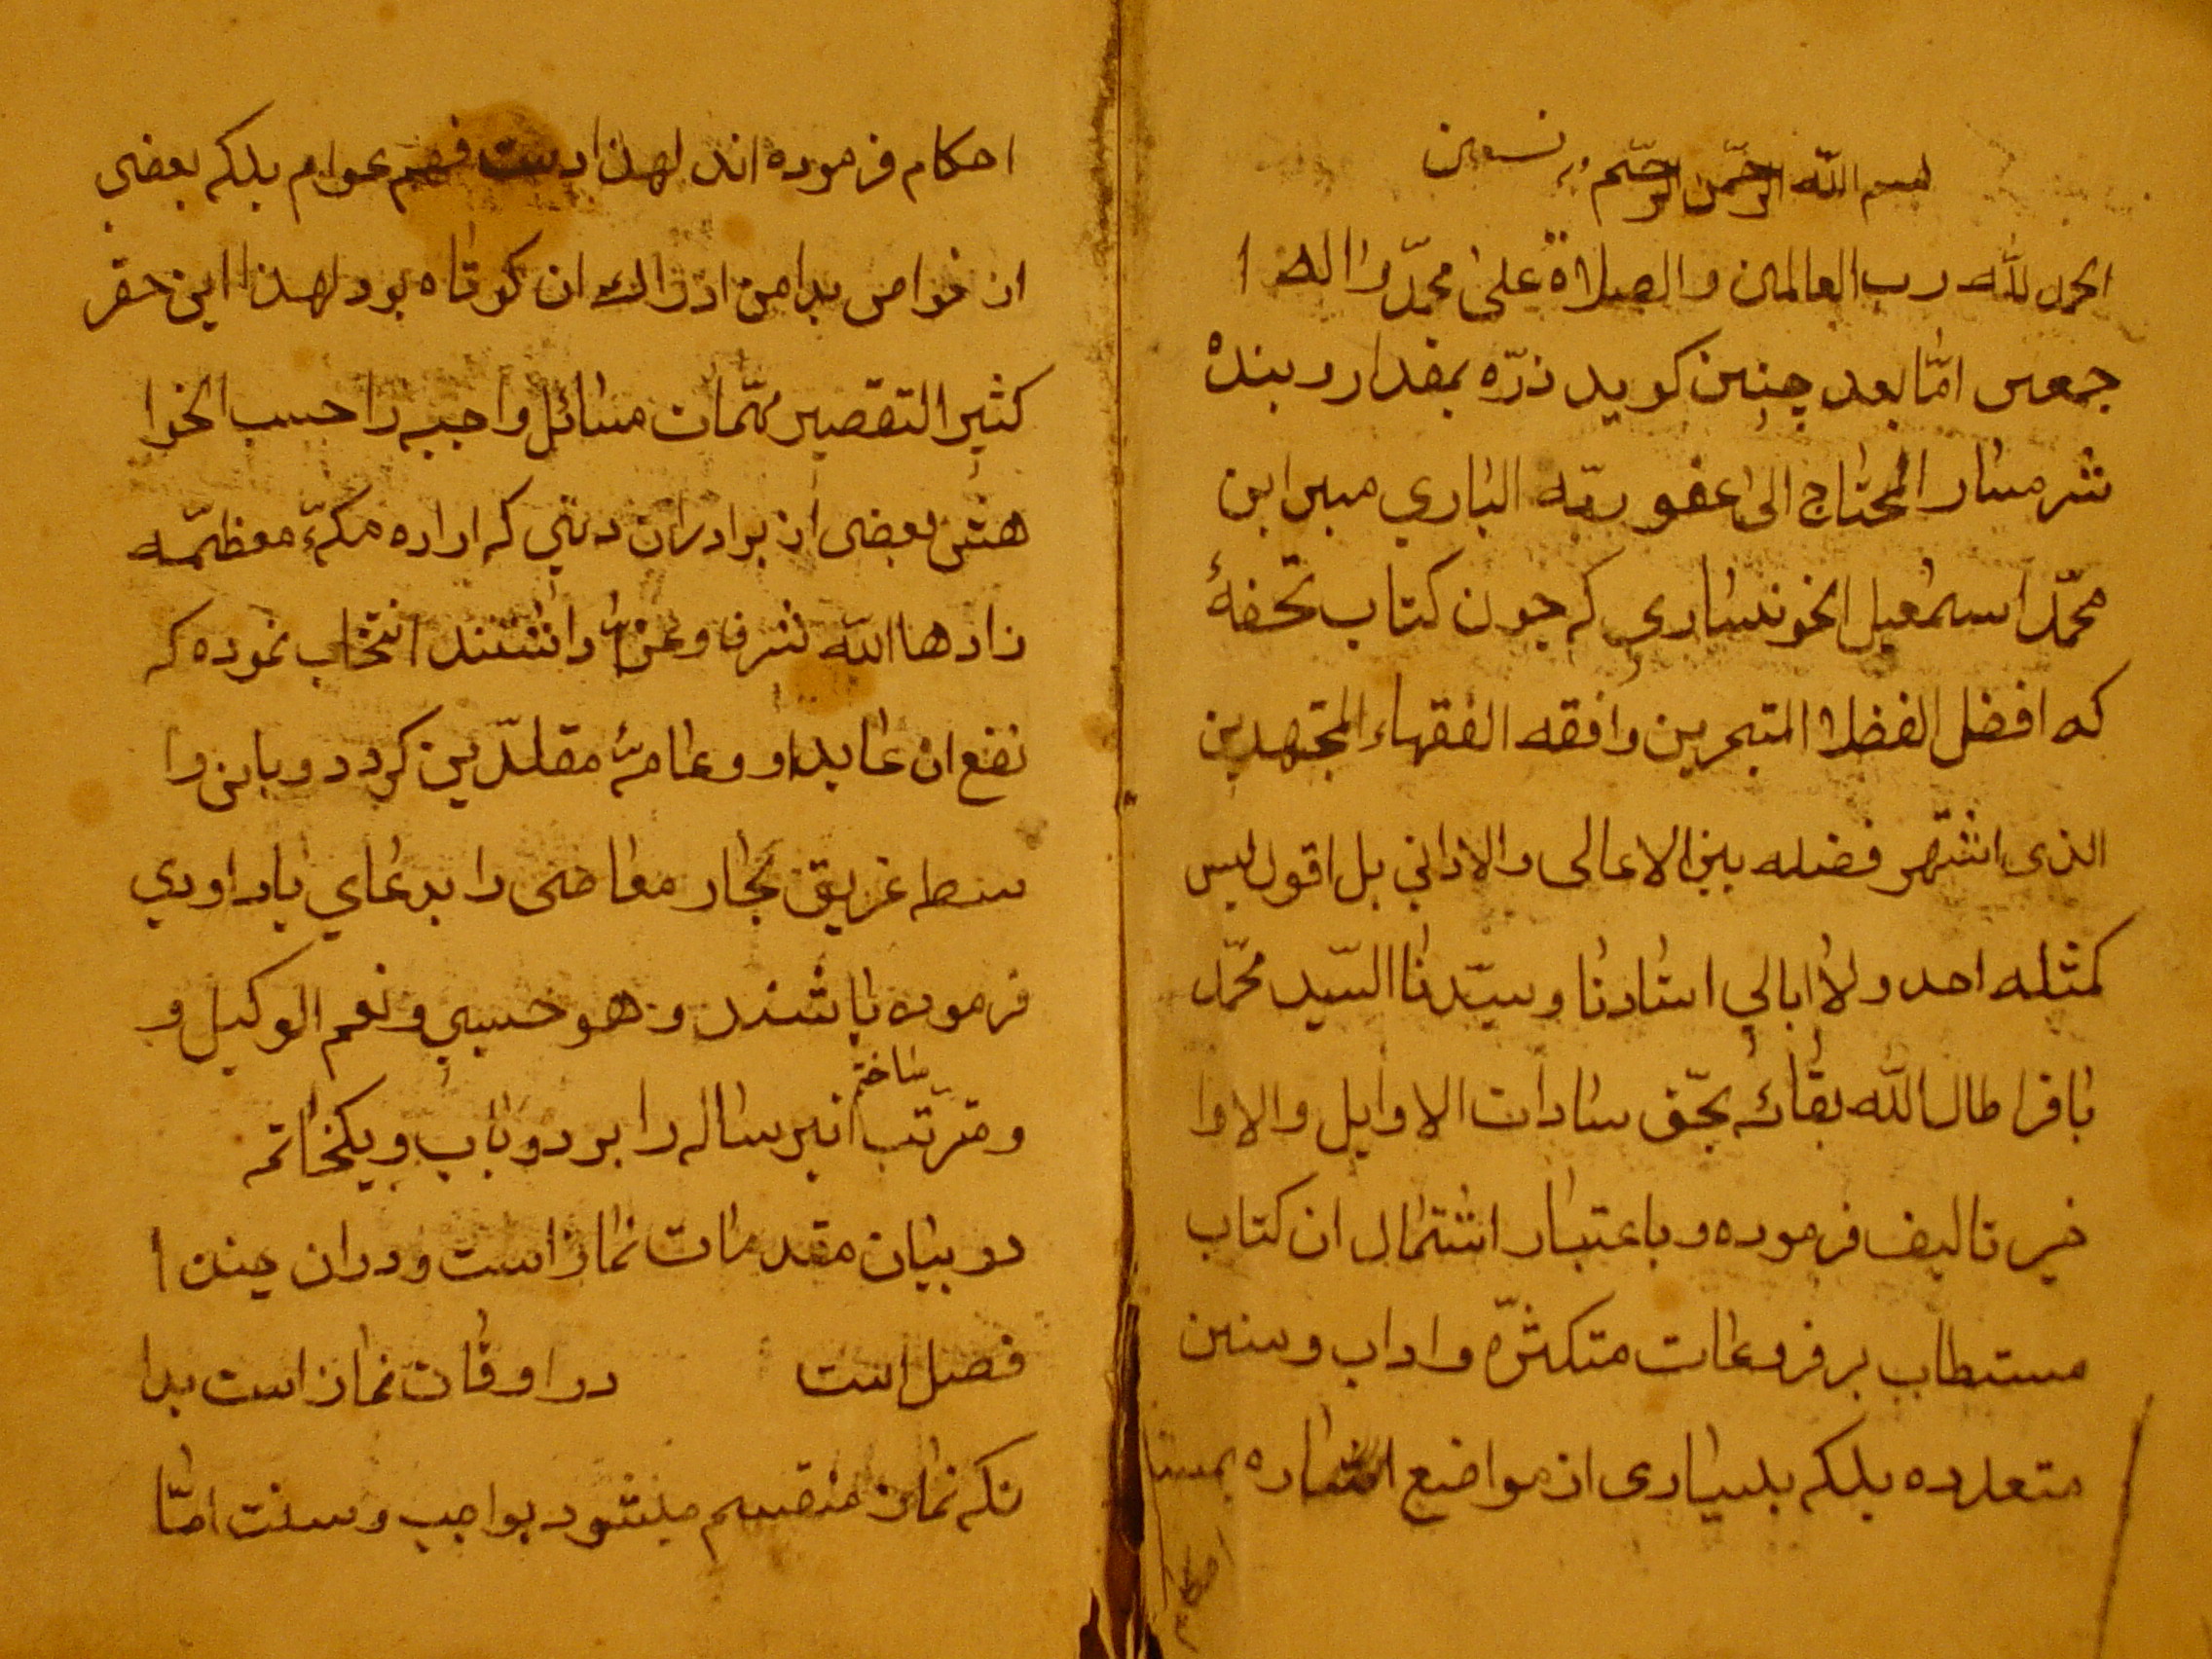 بسم الله الرحمن الرحیم وبه نستعین
الحمد لله رب العالمین والصلاة علی محمّد واله ا
جمعین امّا بعد چنین کوید ذرّه بمقدار و بنده
شرمسار المحتاج الی عفو ربّه الباري میر ابن
محمّد اسمعیل الخونساری که چون کتاب تحفهٔ
که افضل الفضلا المتبحرین وافقه الفقهاء المجتهدین
الذی اشتهر فضله بین الاعالی والاداني بل اقول لیس
کمثله احد ولا ابالي استادنا وسیّدنا السّید محمّد
باقر اطال الله بقائه بحّق سادات الاوایل والاوا
خیر تالیف فرموده و باعتبار اشتمال ان کتاب
مستطاب بر فروعات متکثرّه واداب وسنین
متعدده بلکه بسیاری از مواضع اشاره بمستند
احکام
احکام فرموده اند لهذا دست فهم عوام بلکه بعضي
از خواص بدامن ادراك ان کوتاه بود لهذا این حقر
کثیر التقصیر مهّمات مسائل واجبه را حسب الخوا
هش بعضی از برادران دیني که اراده مکهّٔ معظمّه
زادها الله شرفا وعزا داشتند انتخاب نموده که
نفع ان عاید او وعامهٔ مقلدّین کردد و باین وا
سطه غریق بحار معاصی را بدعاي یاد اوري
فرموده باشند و هو حسبي ونعم الوکیل و
ومترتّب ساختم اینرساله را بر دو باب و یکخاتمه
در بیان مقدمات نماز است ودران چنن ا
فصل است در اوقات نماز است بدا
نکه نماز منقسم میشود بواجب وسنت امّا